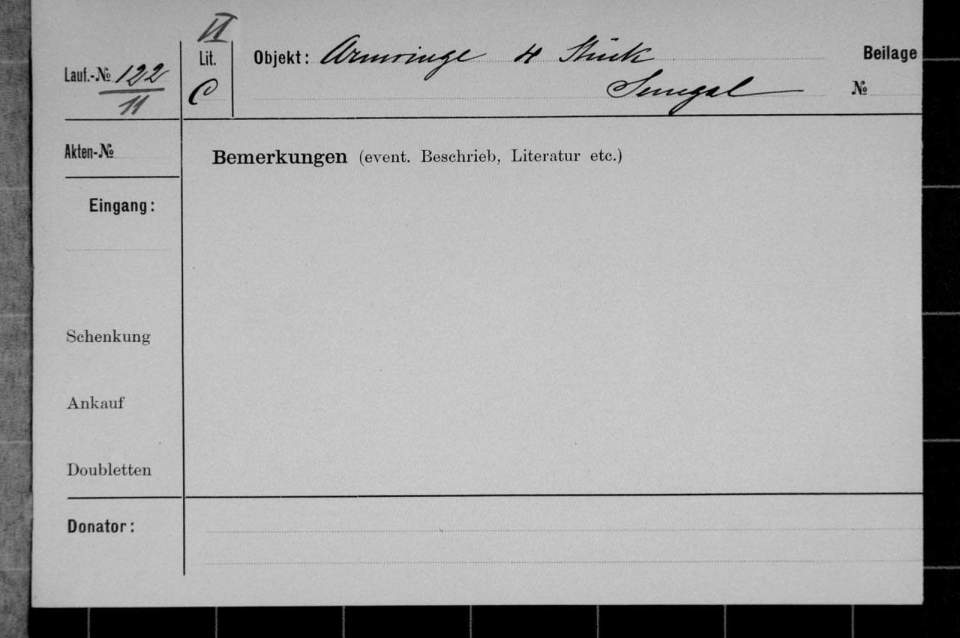 VI
Lauf.-№ 122
11
Lit.
C
Objekt: Armringe 4 Stück
Senegal
Beilage
№
Akten-№
Bemerkungen (event. Beschrieb, Literatur etc.)
Eingang:
Schenkung
Ankauf
Doubletten
Donator: